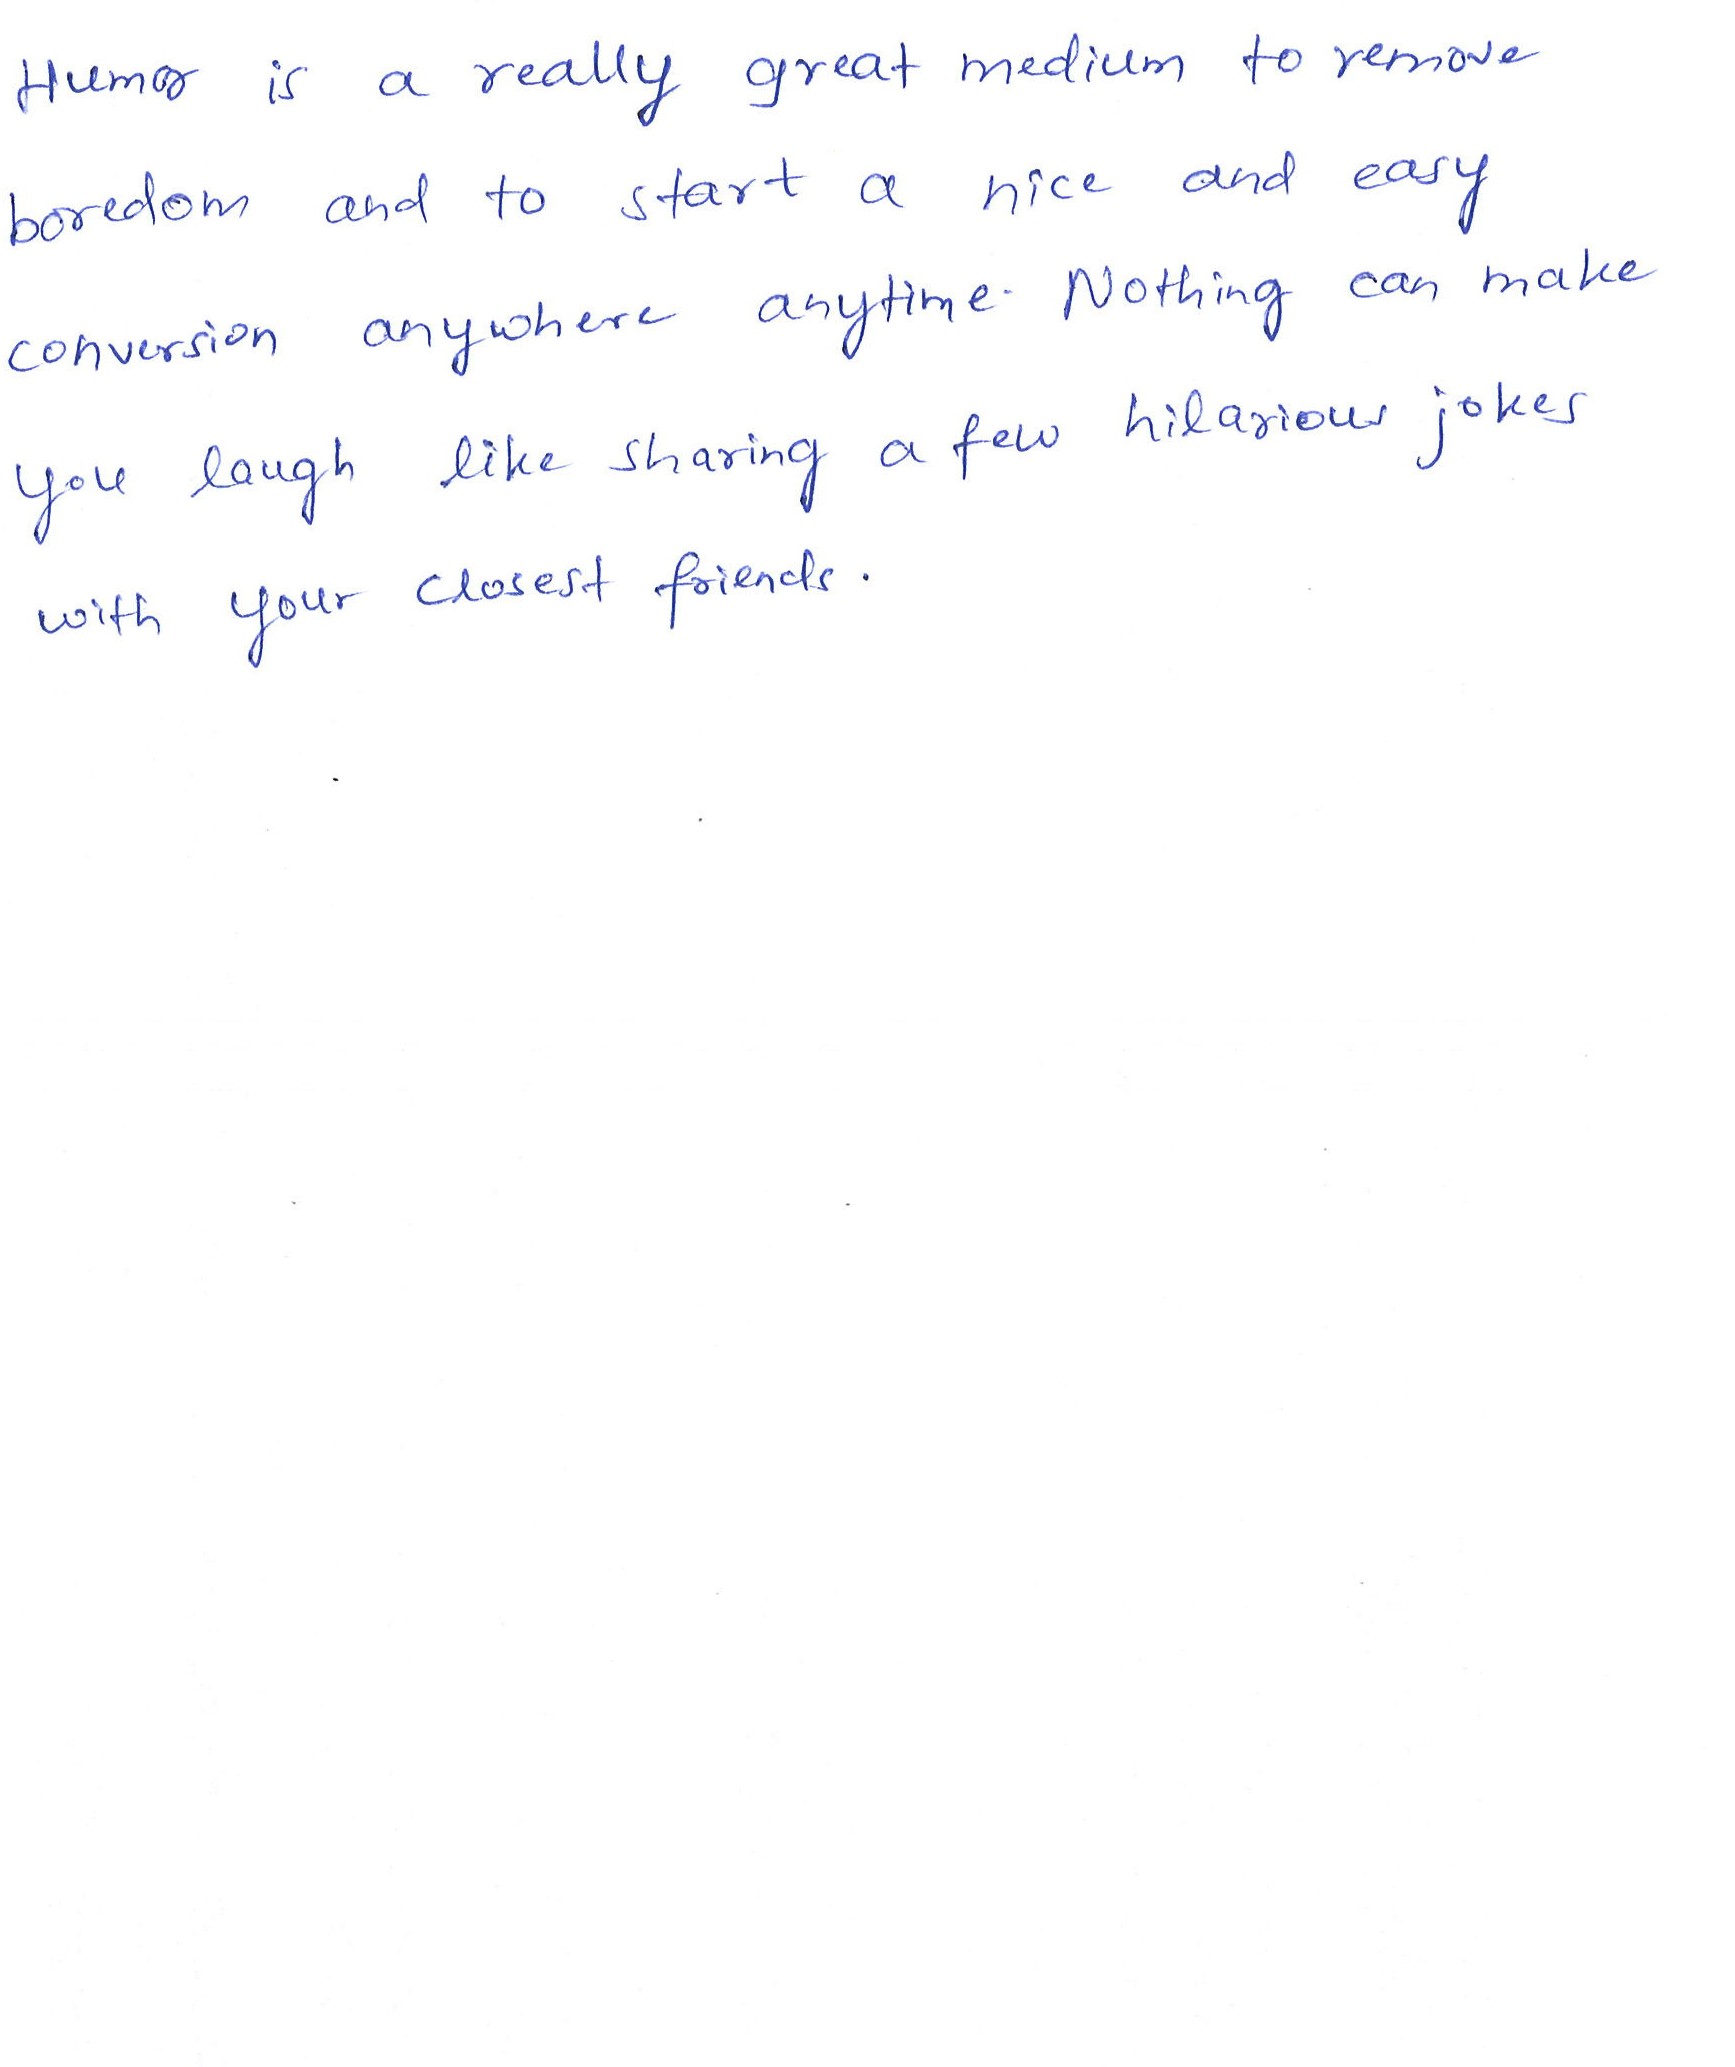 Humor is a really great medium to remove
boredom and to start a nice and easy
conversion anywhere anytime. Nothing can make
you laugh like sharing a few hilarious jokes
with your closest friends.